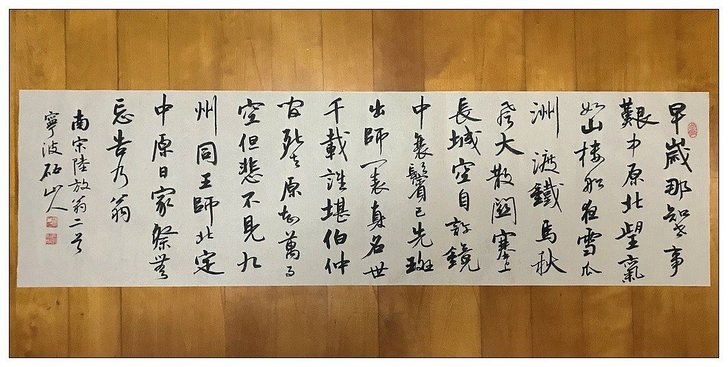 早歲那知世事
艱中原北望氣
如山樓船夜雪瓜
洲渡鐵馬秋
風大散關塞上
長城空自許鏡
中衰鬢已先斑
出師一表真名世
千載誰堪伯仲
間死去原知萬事
空但悲不見九
州同王師北定
中原日家祭無
忘告乃翁
南宋陸放翁二首
寧波山人